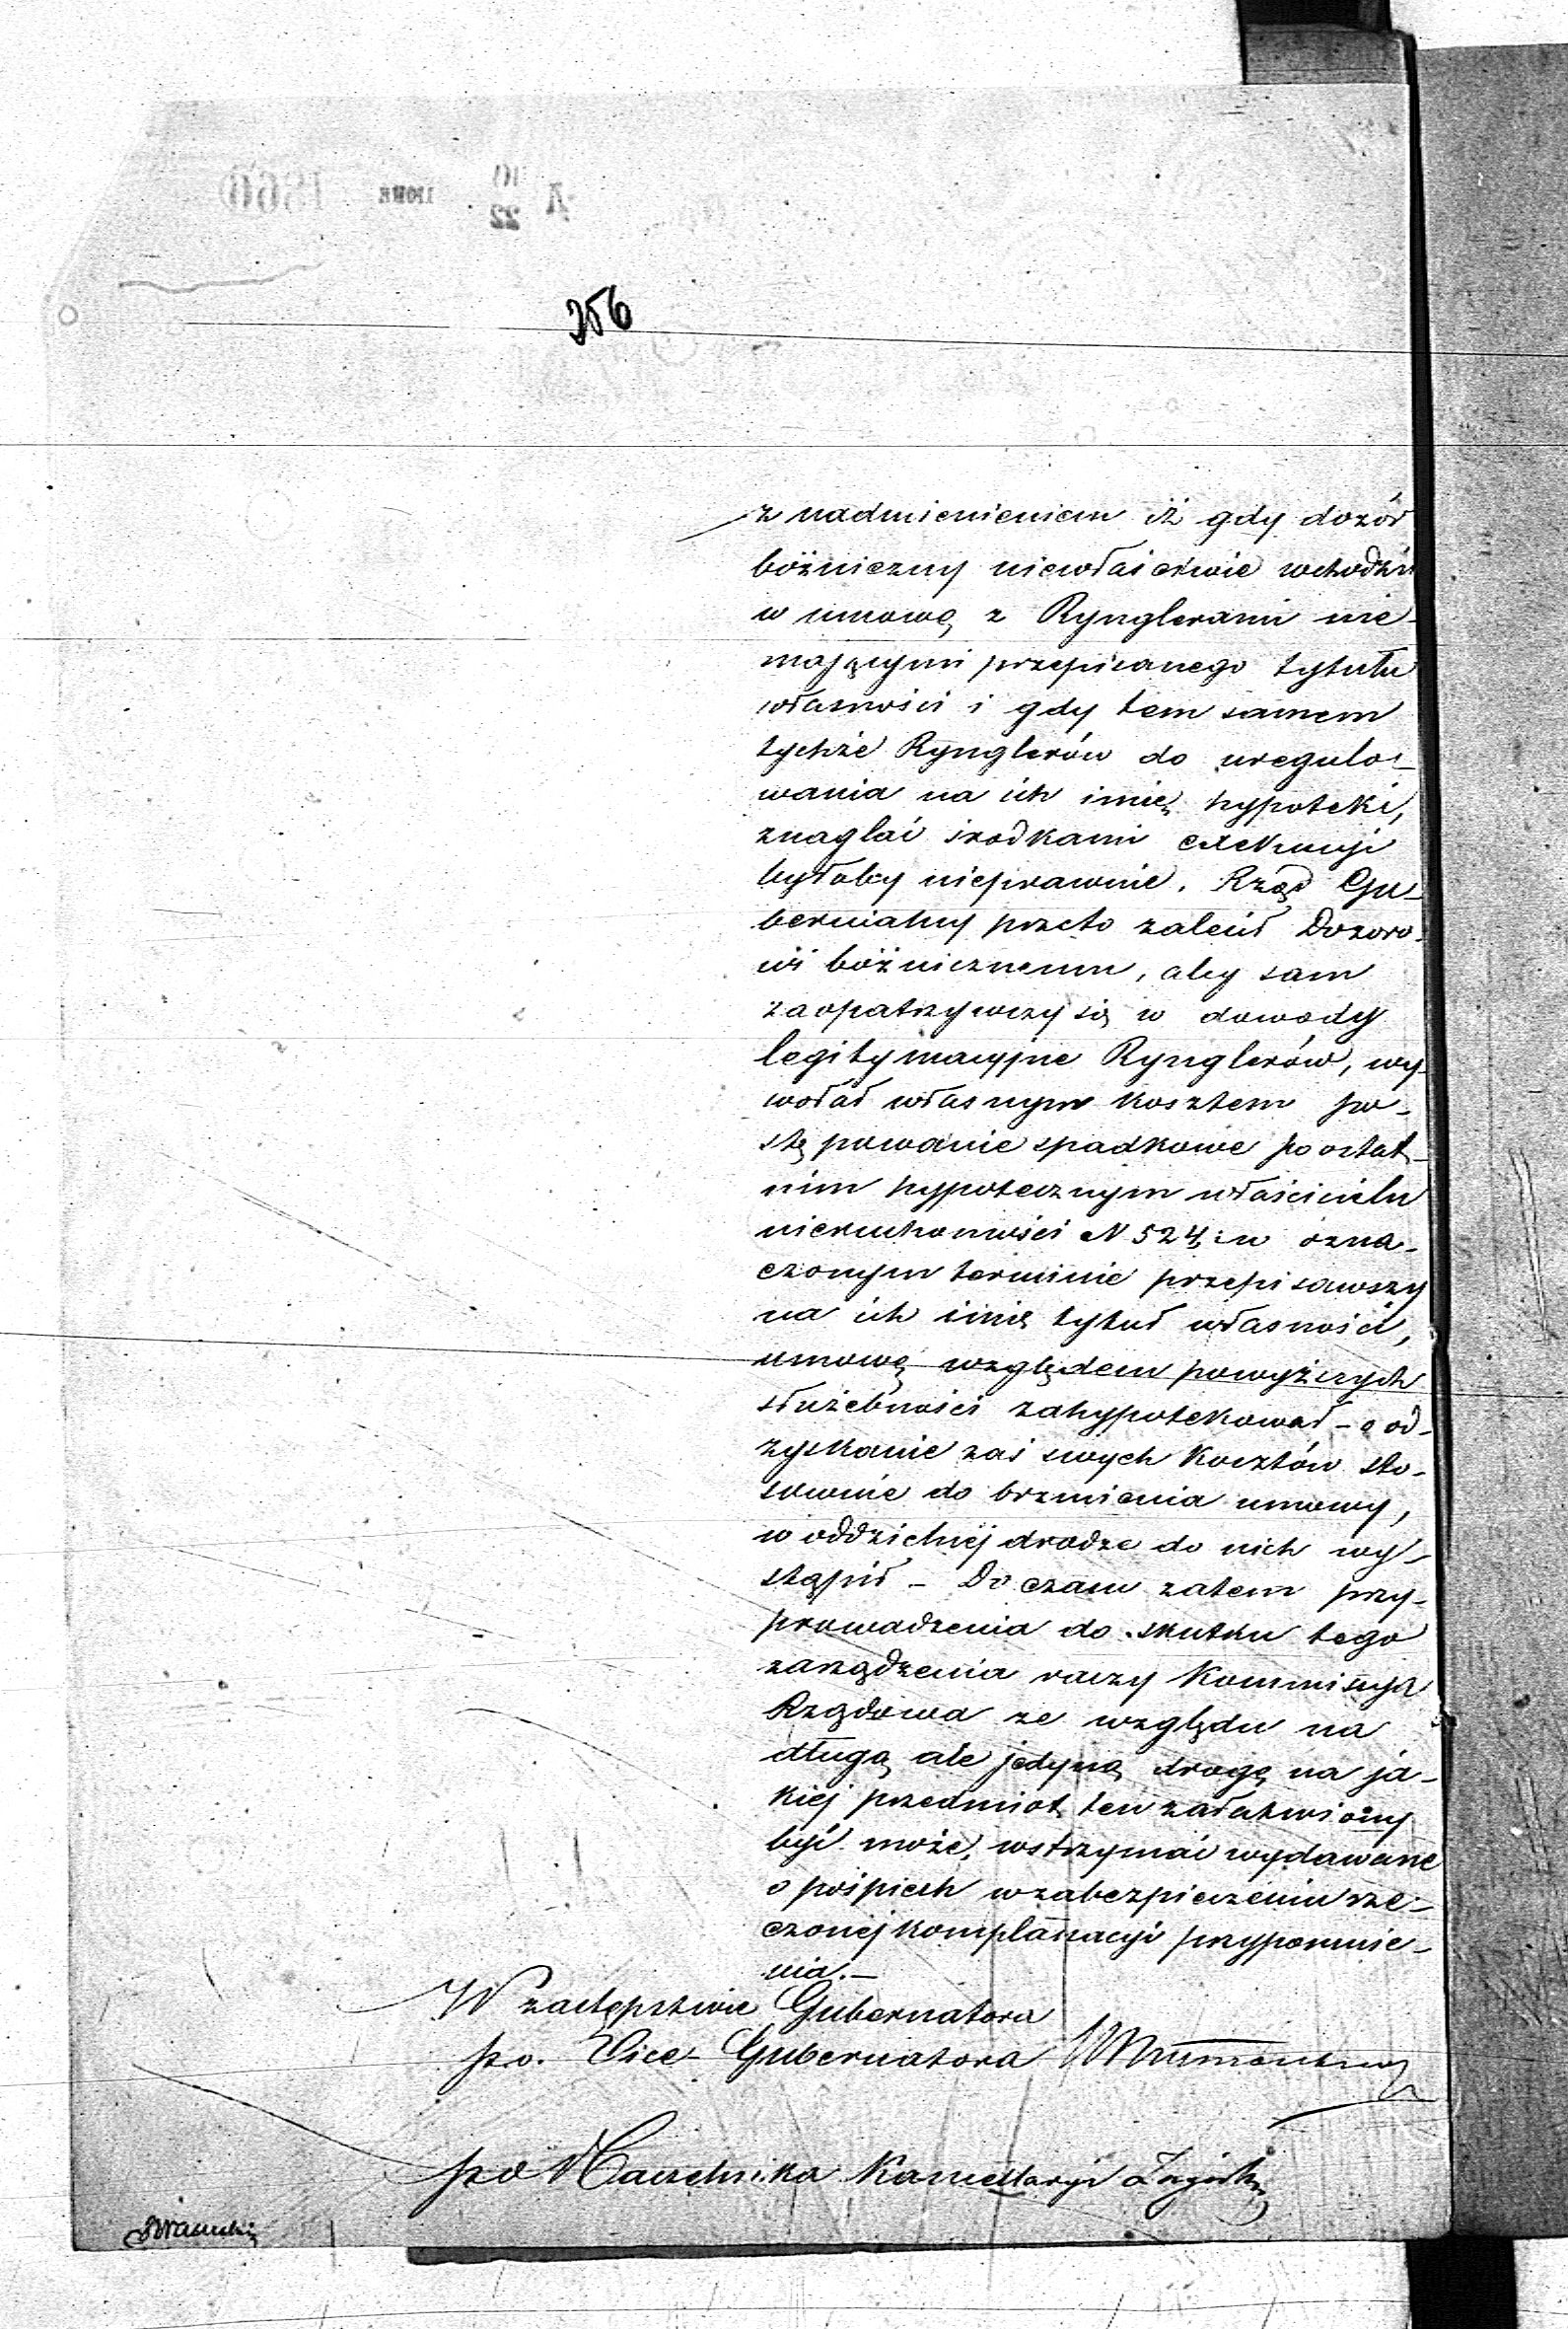 256
z nadmienieniem iż gdy dozór
bóżniczny niewłaściwie wchodził
w umowę z Rynglerami nie-
mającymi przepisanego tytułu
własności i gdy tem samem
tychże Rynglerów do uregulo-
wania na ich imię hypoteki,
znaglać środkami exekucyi
byłoby nieprawnie. Rząd Gu-
bernialny przeto zalecił Dozoro-
wi bóżnicznemu, aby sam
zaopatrzywszy się w dowody
legitymacyjne Rynglerów, wy-
wołał własnym kosztem po-
stępowanie spadkowe po ostat-
nim hypotecznym właścicielu
nieruchomości N 524; i w ozna-
czonym terminie przepisawszy
na ich imię tytuł własności,
umowę względem powyższych
służebności zahypotekował – o od-
zyskanie zaś swych kosztów sto-
sownie do brzmienia umowy,
w oddzielnej drodze do nich wy-
stąpił – Do czasu zatem przy-
prowadzenia do skutku tego
zarządzenia raczy Kommissya
Rządowa ze względu na
długą ale jedyną drogę na ja-
kiej przedmiot ten załatwiony
być może, wstrzymać wydawane
o pośpiech w zabezpieczeniu rze-
czonej komplanacyi przypomnie-
nia.–
W zastępstwie Gubernatora
p.o. Vice-Gubernatora
p.o. Naczelnika Kancellaryi